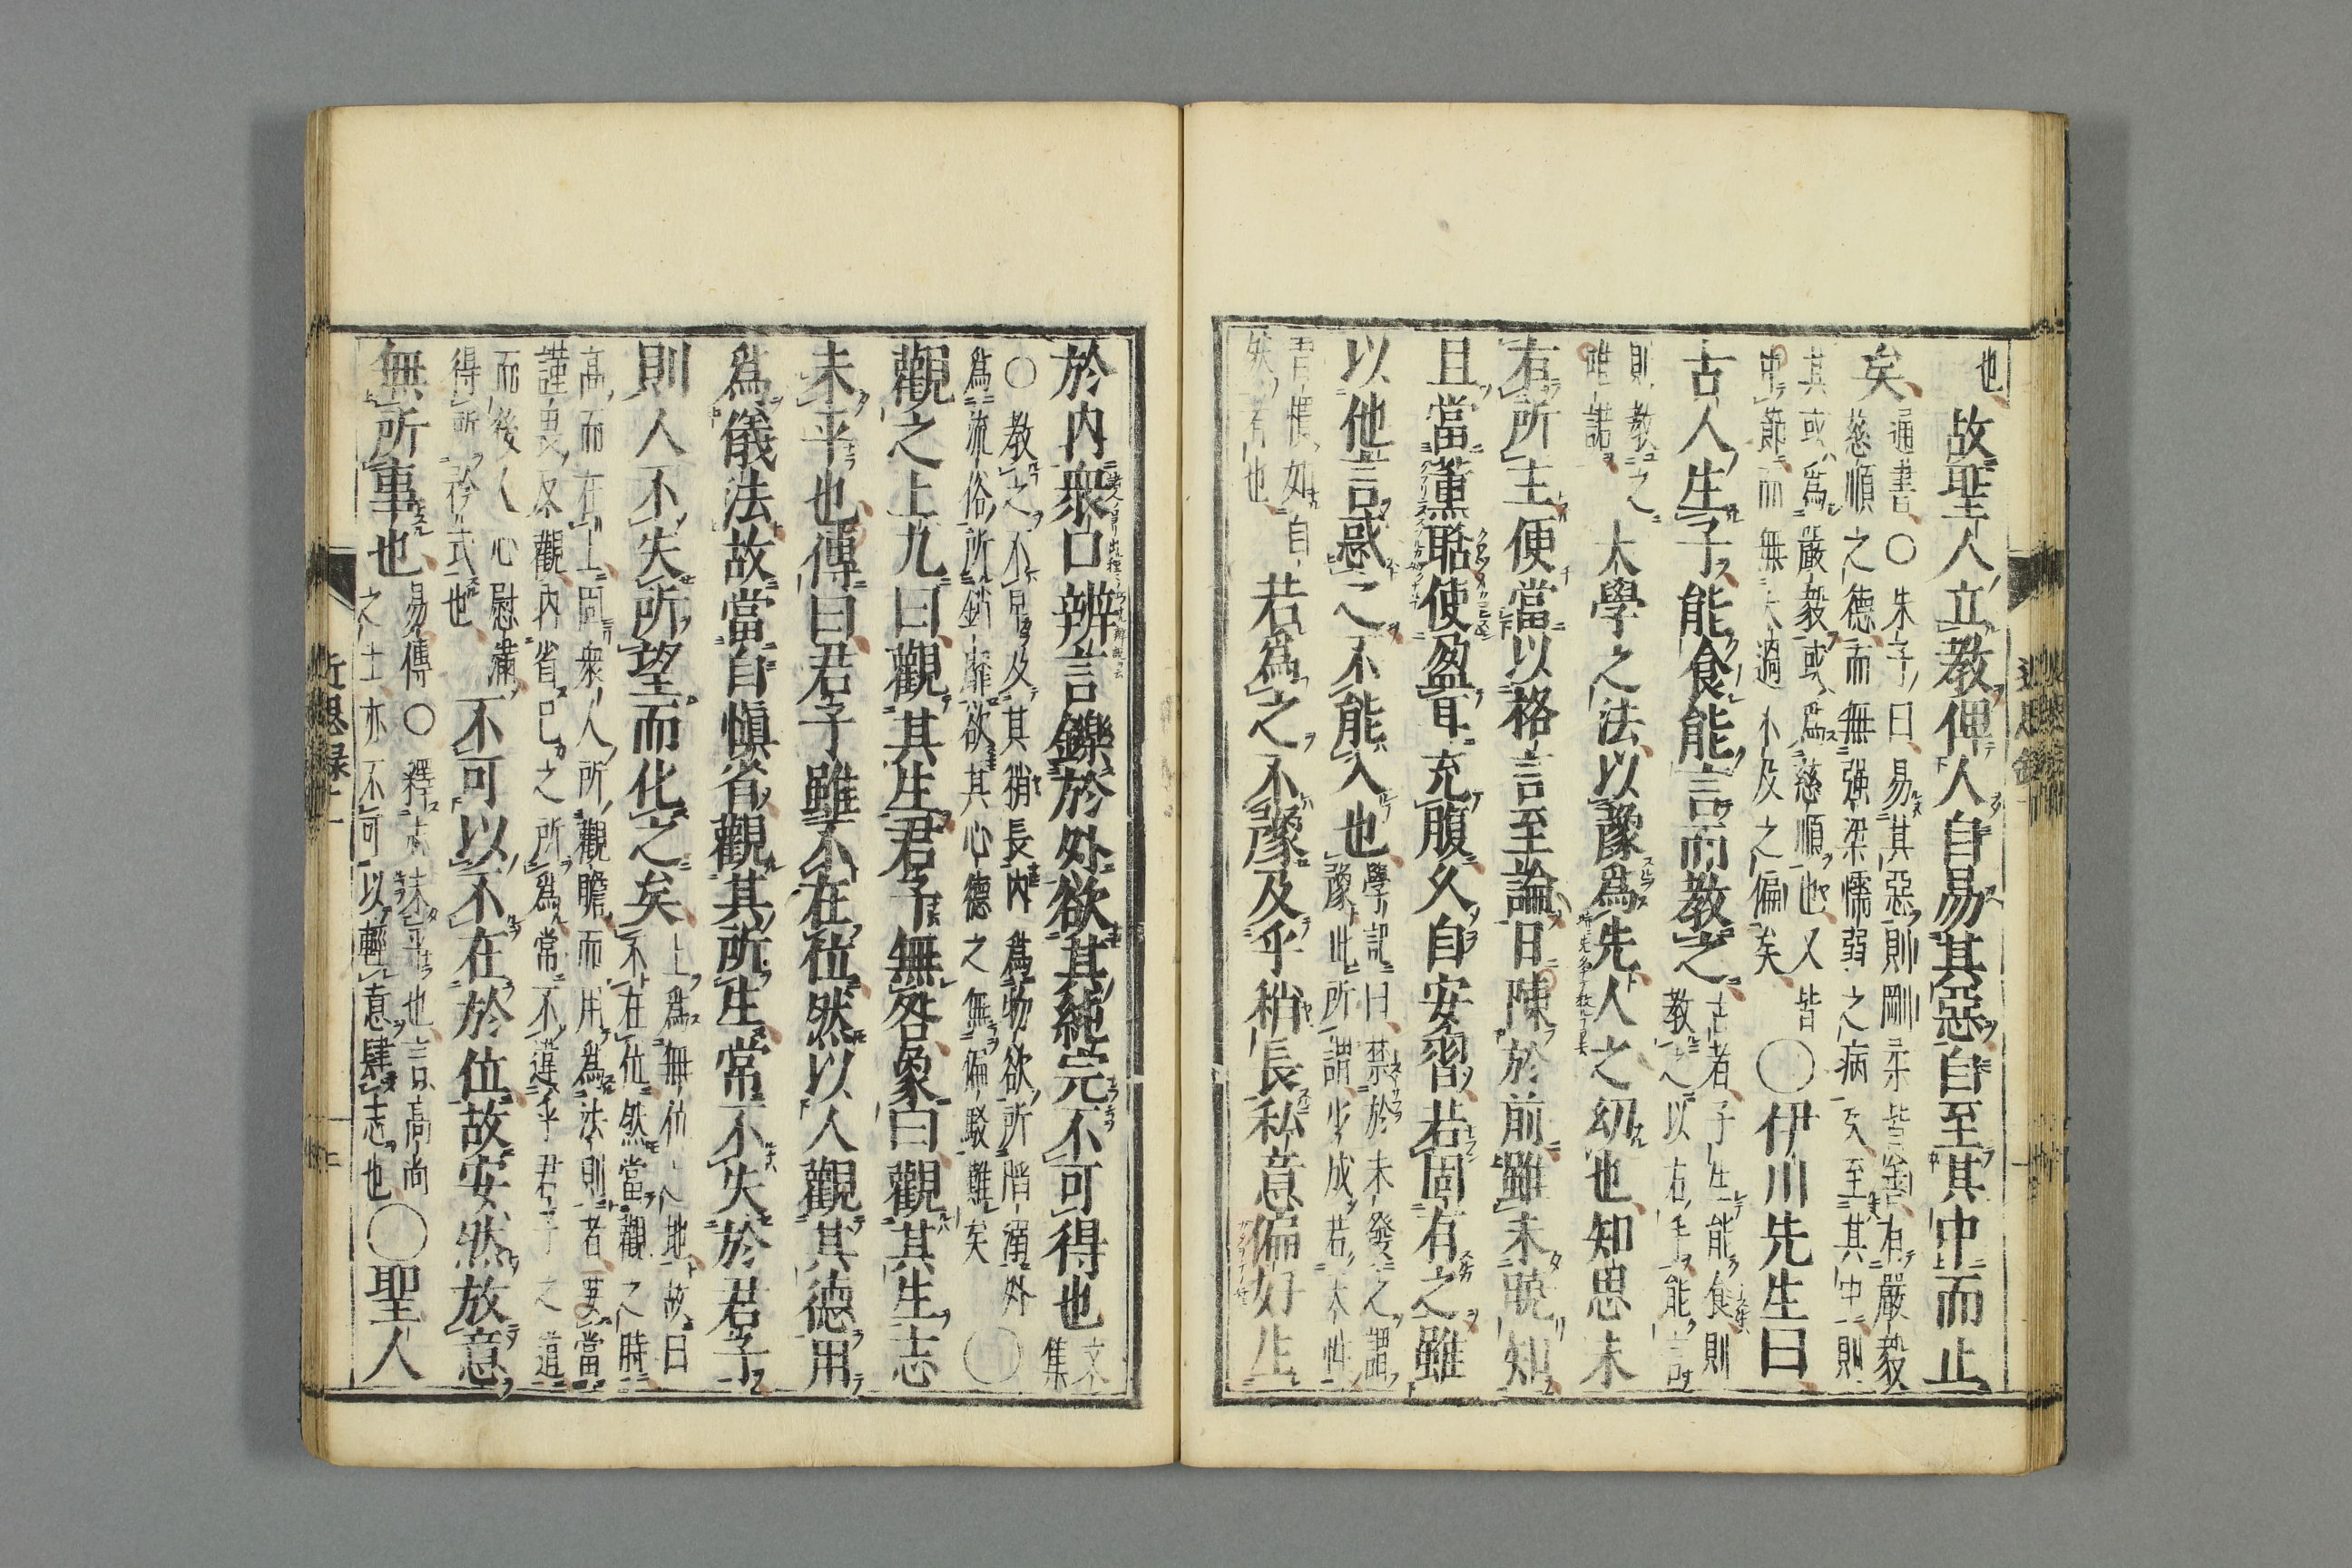 也故聖人立教俾人自易其惡自至其中而止
矣通書○朱子曰易其惡則剛柔皆善有嚴毅
慈順之德而無強梁懦弱之病矣至其中則
其或爲嚴毅或爲慈順也又皆
中節而無太過不及之偏矣○伊川先生曰
古人生子能食能言而教之古者子生能食則
教之以右手能言
則教之
唯諾大學之法以豫爲先人之幼也知思未
有所主便當以格言至論日陳於前雖未曉知
且當薰聒使盈耳充腹久自安習若固有之雖
以他言惑之不能入也學記曰禁於未發之謂
豫此所謂少成若天性
習慣如自
然者也若爲之不豫及乎稍長私意偏好生
於内衆口辨言鑠於外欲其純完不可得也文集
○教之不早及其稍長内爲物欲所陷溺外
爲流俗所銷靡欲其心德之無偏駁難矣○
觀之上九曰觀其生君子無咎象曰觀其生志
未平也傳曰君子雖不在位然以人觀其德用
爲儀法故當自愼省觀其所生常不失於君子
則人不失所望而化之矣上爲無位之地故曰
不在位然當觀之時
高而在上固衆人所觀瞻而用爲法則者要當
謹畏反觀内省己之所爲常不違乎君子之道
而後人心慰滿
得所矜式也不可以不在於位故安然放意
無所事也易傳○釋志未平也言高尚
之士亦不可以輕意肆志也○聖人
近思録十一